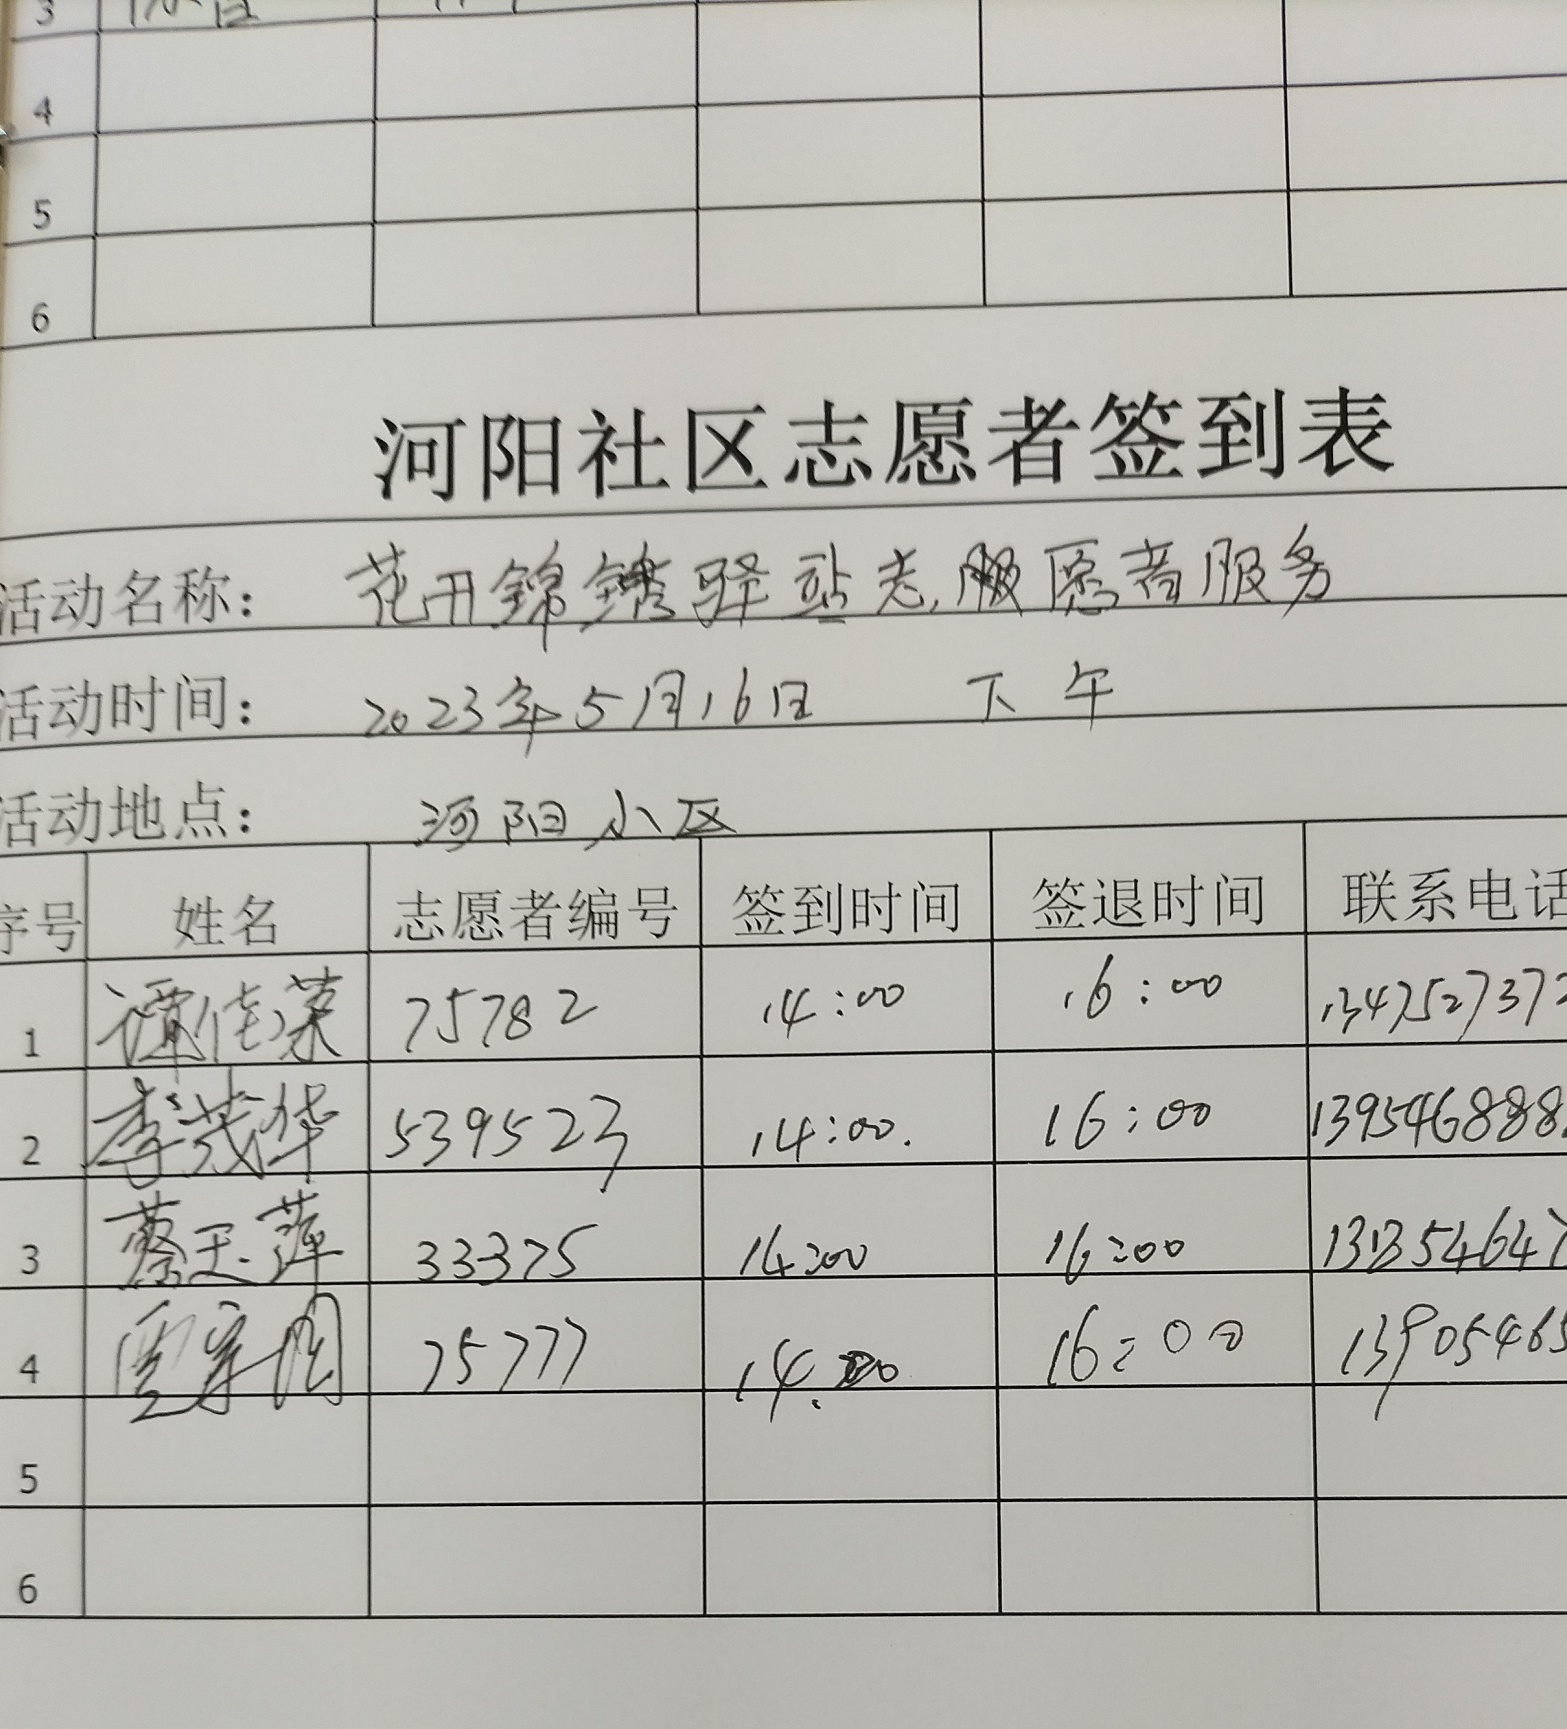 3
4
5
6
河阳社区志愿者签到表
活动名称： 花开锦绣驿站志愿者服务
活动时间： 2023年5月16日 下午
活动地点： 河阳小区
序号 姓名 志愿者编号 签到时间 签退时间 联系电话
1 谭佳荣 75782 14:00 16:00 1347527372
2 李茂华 539523 14:00. 16:00 139546888
3 蔡玉萍 33375 14:00 16:00 135464
4 75777 14:00 16:00 13905465
5
6